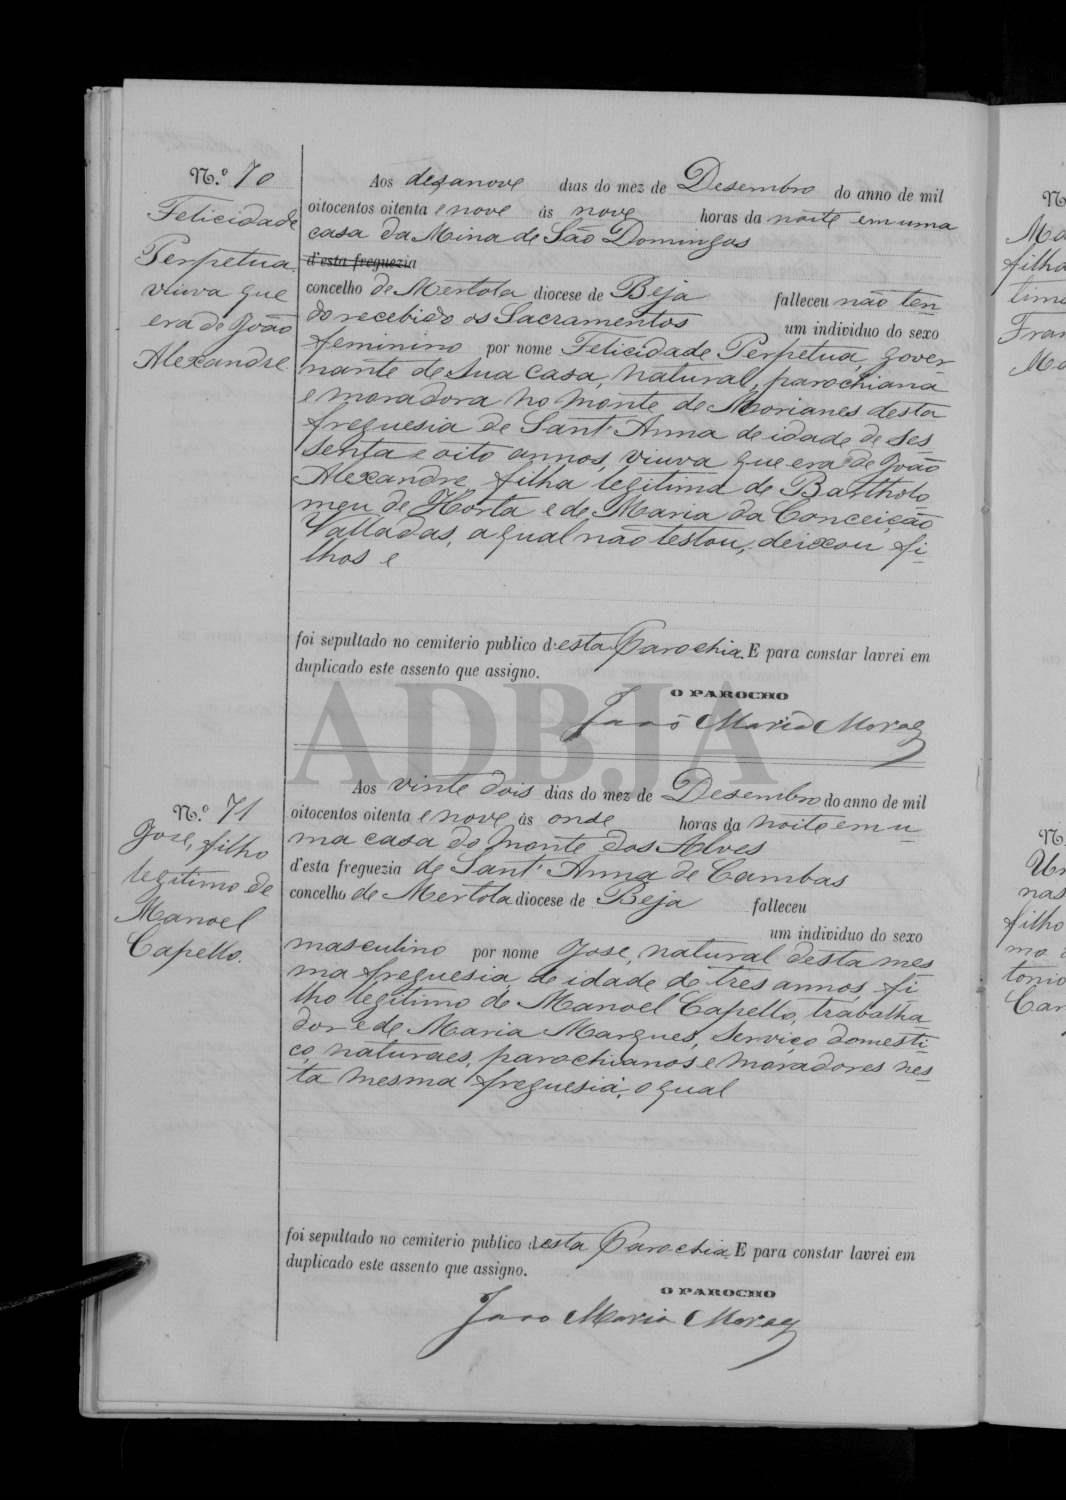 N.º 70
Felicidade
Perpetua,
viuva que
era de João
Alexandre.
Aos dezanove dias do mez de Desembro do anno de mil
oitocentos oitenta e nove ás nove horas da noite em uma
casa da Mina de São Domingos
d'esta freguezia
concelho de Mertola diocese de Beja falleceu não ten-
do recebido os Sacramentos um individuo do sexo
feminino por nome Felicidade Perpetua, gover-
nante de sua casa, natural, parochiana
e moradora no monte de Morianes desta
freguesia de Sant'Anna de idade de ses-
senta e oito annos, viuva que era de João
Alexandre, filha legitima de Bartholo-
meu de Horta e de Maria da Conceição
Valladas, a qual não testou, deixou fi-
lhos e
foi sepultado no cemiterio publico d'esta Parochia. E para constar lavrei em
duplicado este assento que assigno.
O PAROCHO
João Maria Moraes
ADBJA
N.º 71
Jose, filho
legitimo de
Manoel
Capello.
Aos vinte dois dias do mez de Desembro do anno de mil
oitocentos oitenta e nove ás onse horas da noite em u-
ma casa do monte dos Alves
d'esta freguezia de Sant'Anna de Cambas
concelho de Mertola diocese de Beja falleceu
um individuo do sexo
masculino por nome Jose, natural desta mes-
ma freguesia, de idade de tres annos, fi-
lho legitimo de Manoel Capello, trabalha-
dor e de Maria Marques, serviço domesti-
co, naturaes, parochianos e moradores nes-
ta mesma freguesia, o qual
foi sepultado no cemiterio publico d'esta Parochia. E para constar lavrei em
duplicado este assento que assigno.
O PAROCHO
João Maria Moraes